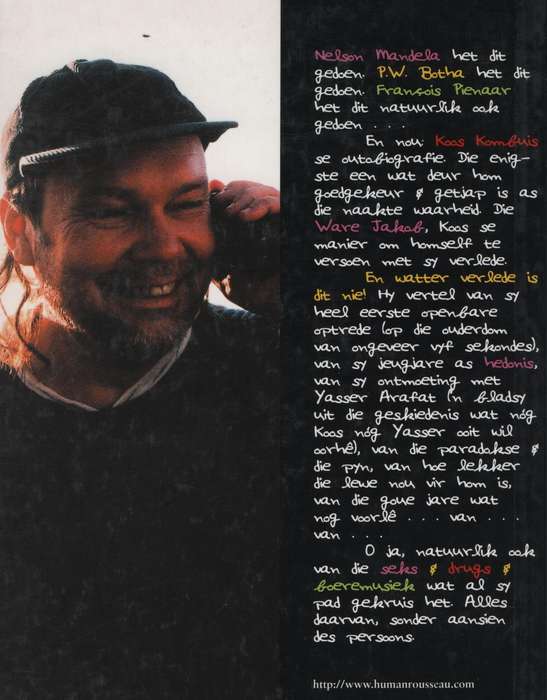 Nelson Mandela het dit
gedoen. P.W. Botha het dit
gedoen. François Pienaar
het dit natuurlik ook
gedoen . . .
En nou Koos Kombuis
se outobiografie. Die enig-
ste een wat deur hom
goedgekeur & getjap is as
die naakte waarheid. Die
Ware Jakob, Koos se
manier om homself te
versoen met sy verlede.
En watter verlede is
dit nie! Hy vertel van sy
heel eerste openbare
optrede (op die ouderdom
van ongeveer vyf sekondes),
van sy jeugjare as hedonis,
van sy ontmoeting met
Yasser Arafat ('n bladsy
uit die geskiedenis wat nóg
Koos nóg Yasser ooit wil
oorhê), van die paradokse &
die pyn, van hoe lekker
die lewe nou vir hom is,
van die goue jare wat
nog voorlê . . . van . . .
van . . .
O ja, natuurlik ook
van die seks & drugs &
boeremusiek wat al sy
pad gekruis het. Alles
daarvan, sonder aansien
des persoons.
http://www.humanrousseau.com